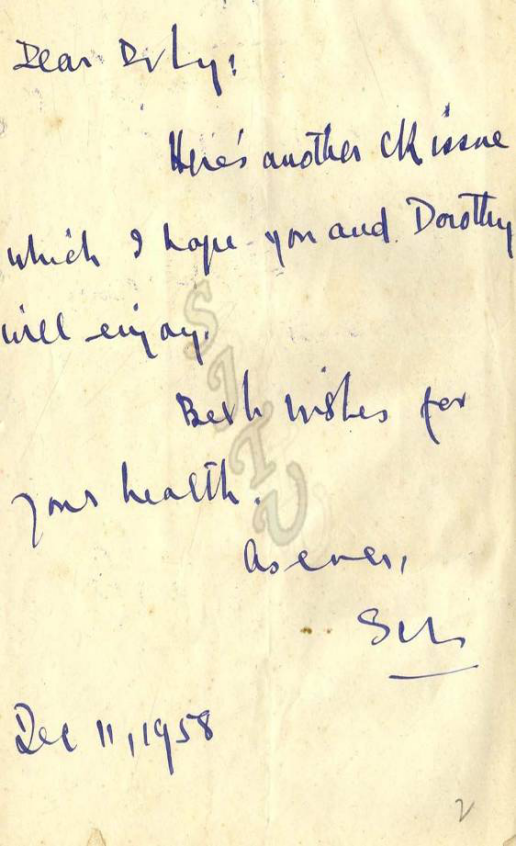 Dear
Here's another issue
which I hope you and Dorothy
will enjoy.
Best wishes for
your health.
As ever,
Dec 11, 1958
2